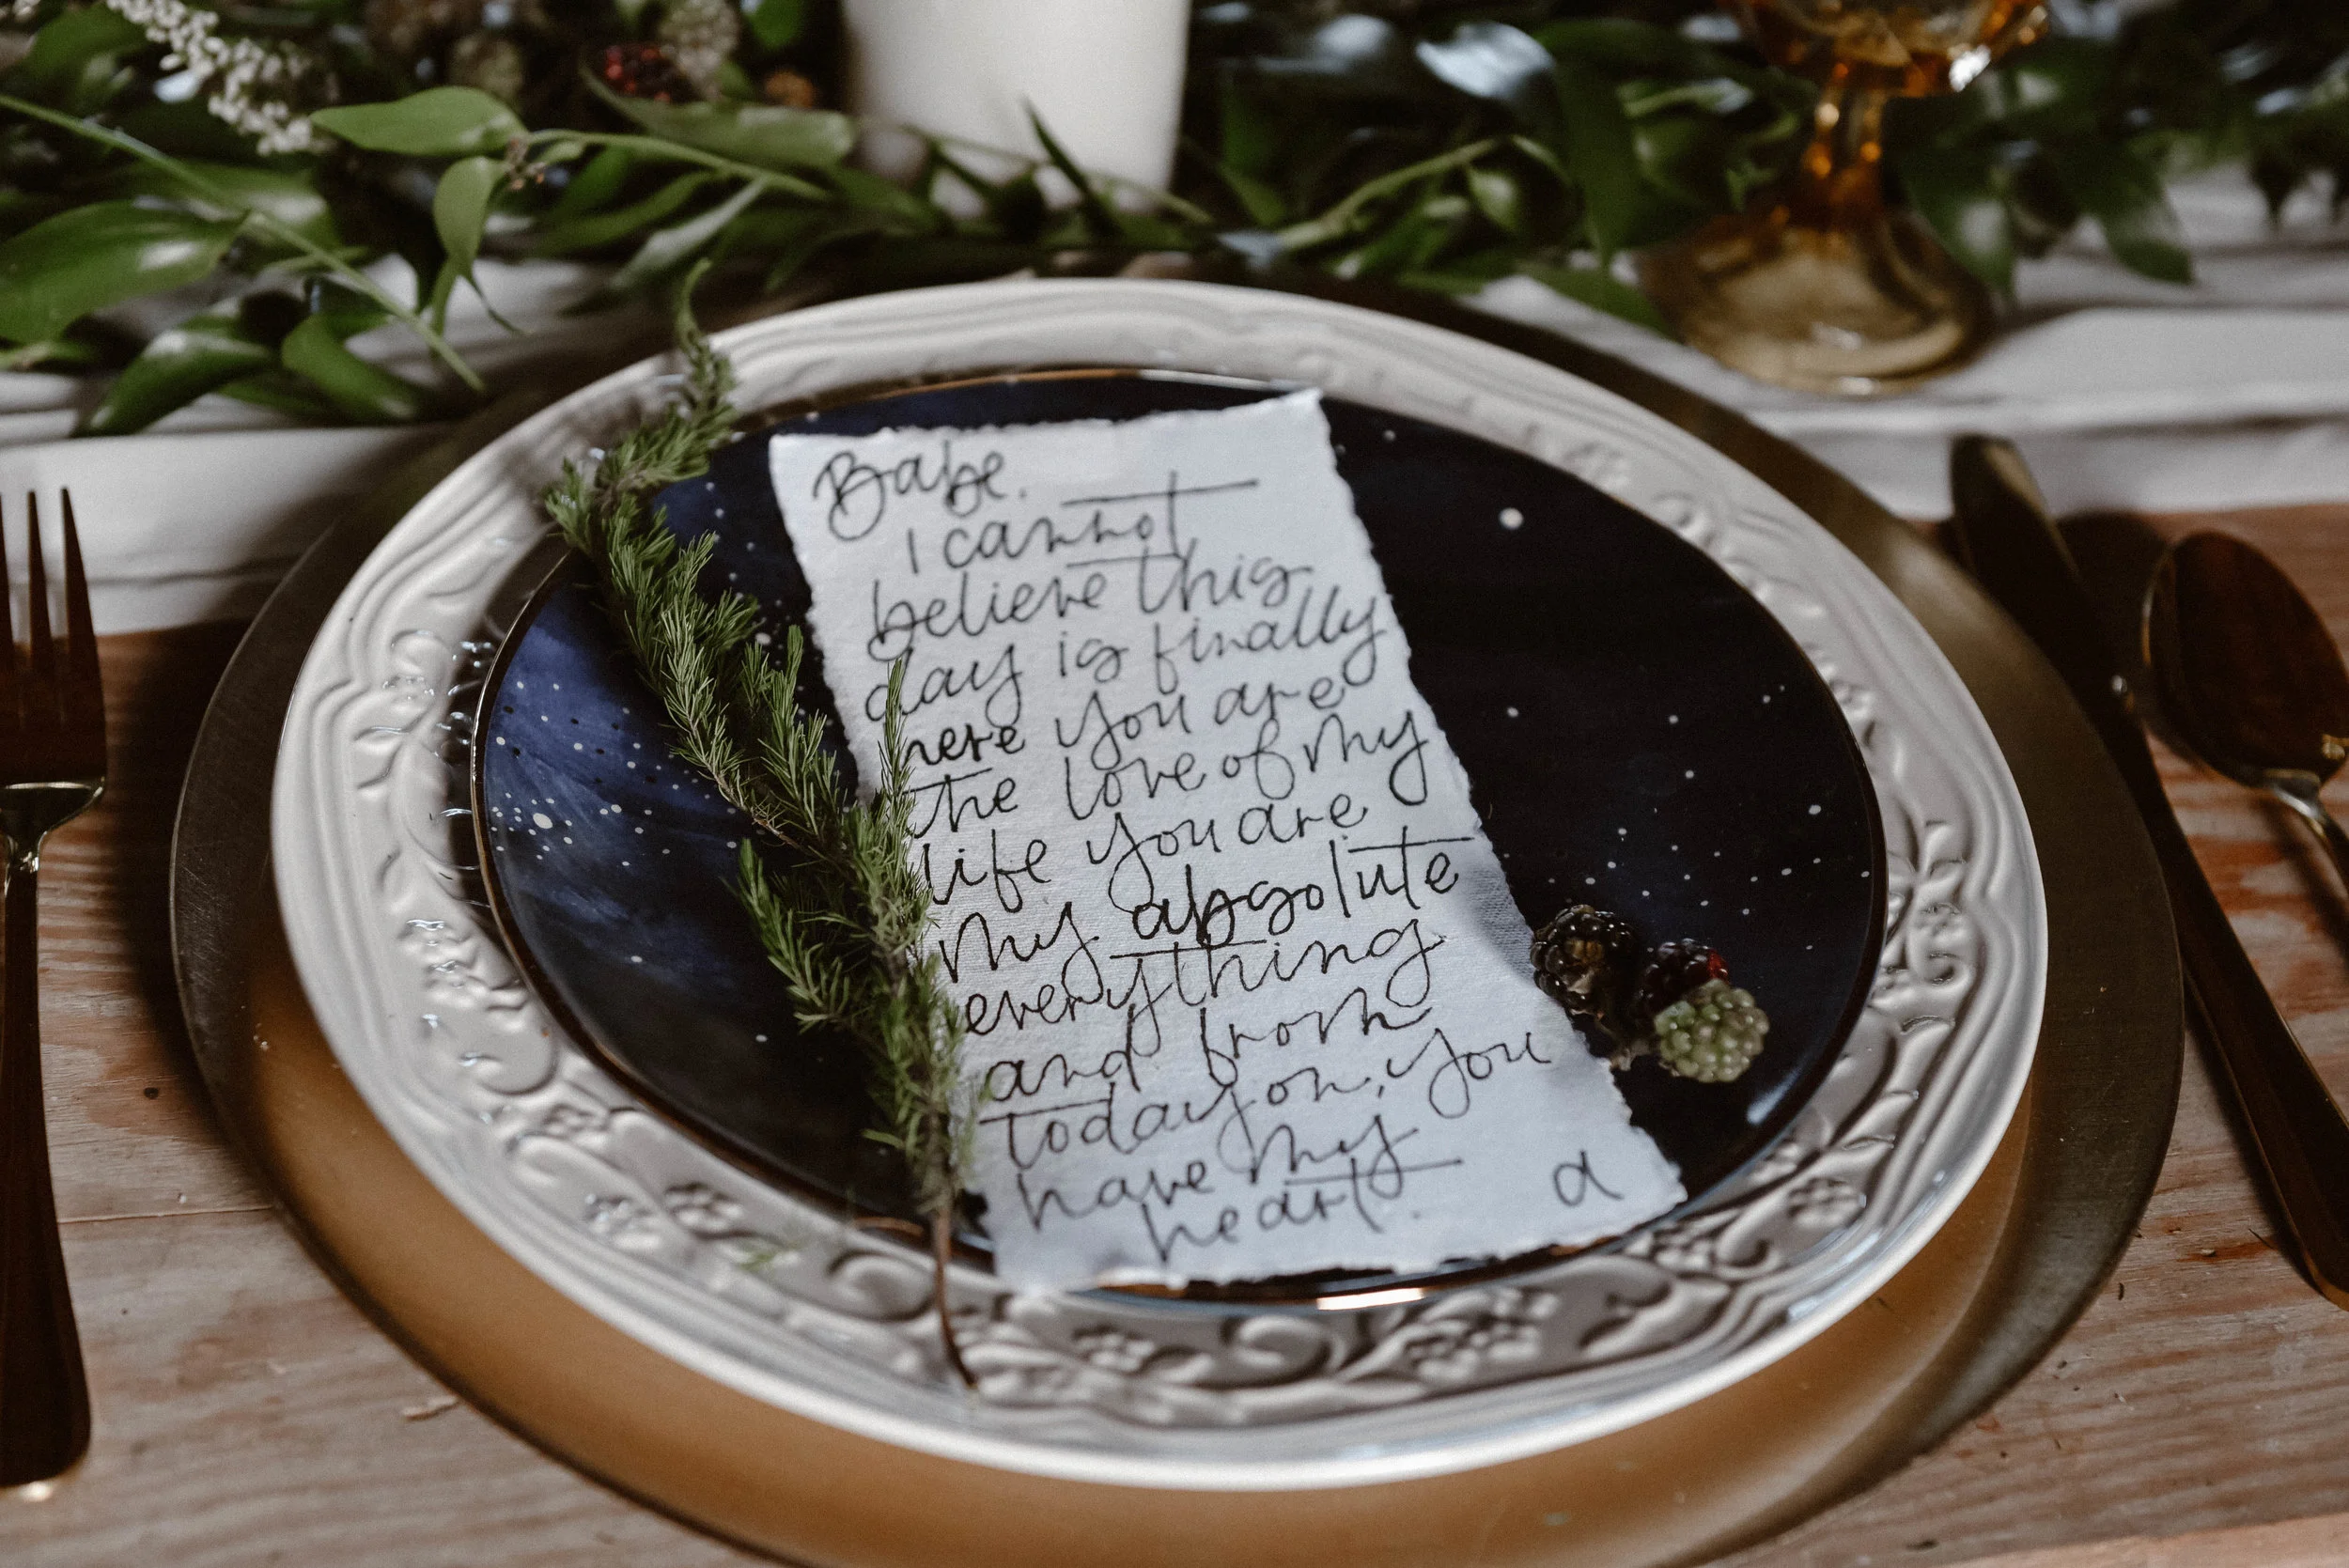 Babe.
I cannot
believe this
day is finally
here you are
the love of my
life you are
my absolute
everything
and from
today on, you
have my
heart.
a